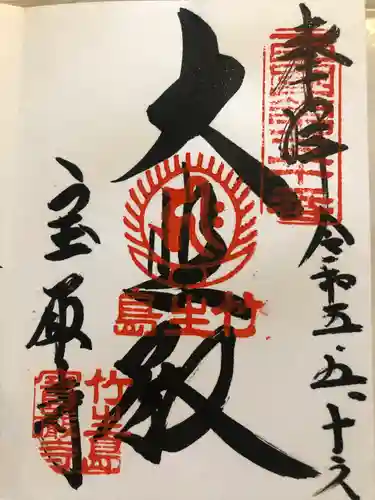 奉拝
令和五.五.十六
大悲殿
竹生島
宝厳寺
竹生島
寶嚴寺